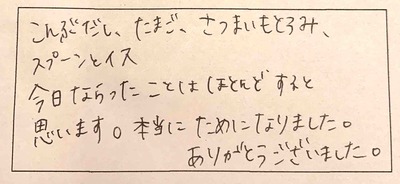 こんぶだし、たまご、さつまいもとろみ、
スプーンとイス
今日ならったことはほとんどすると
思います。本当にためになりました。
ありがとうございました。